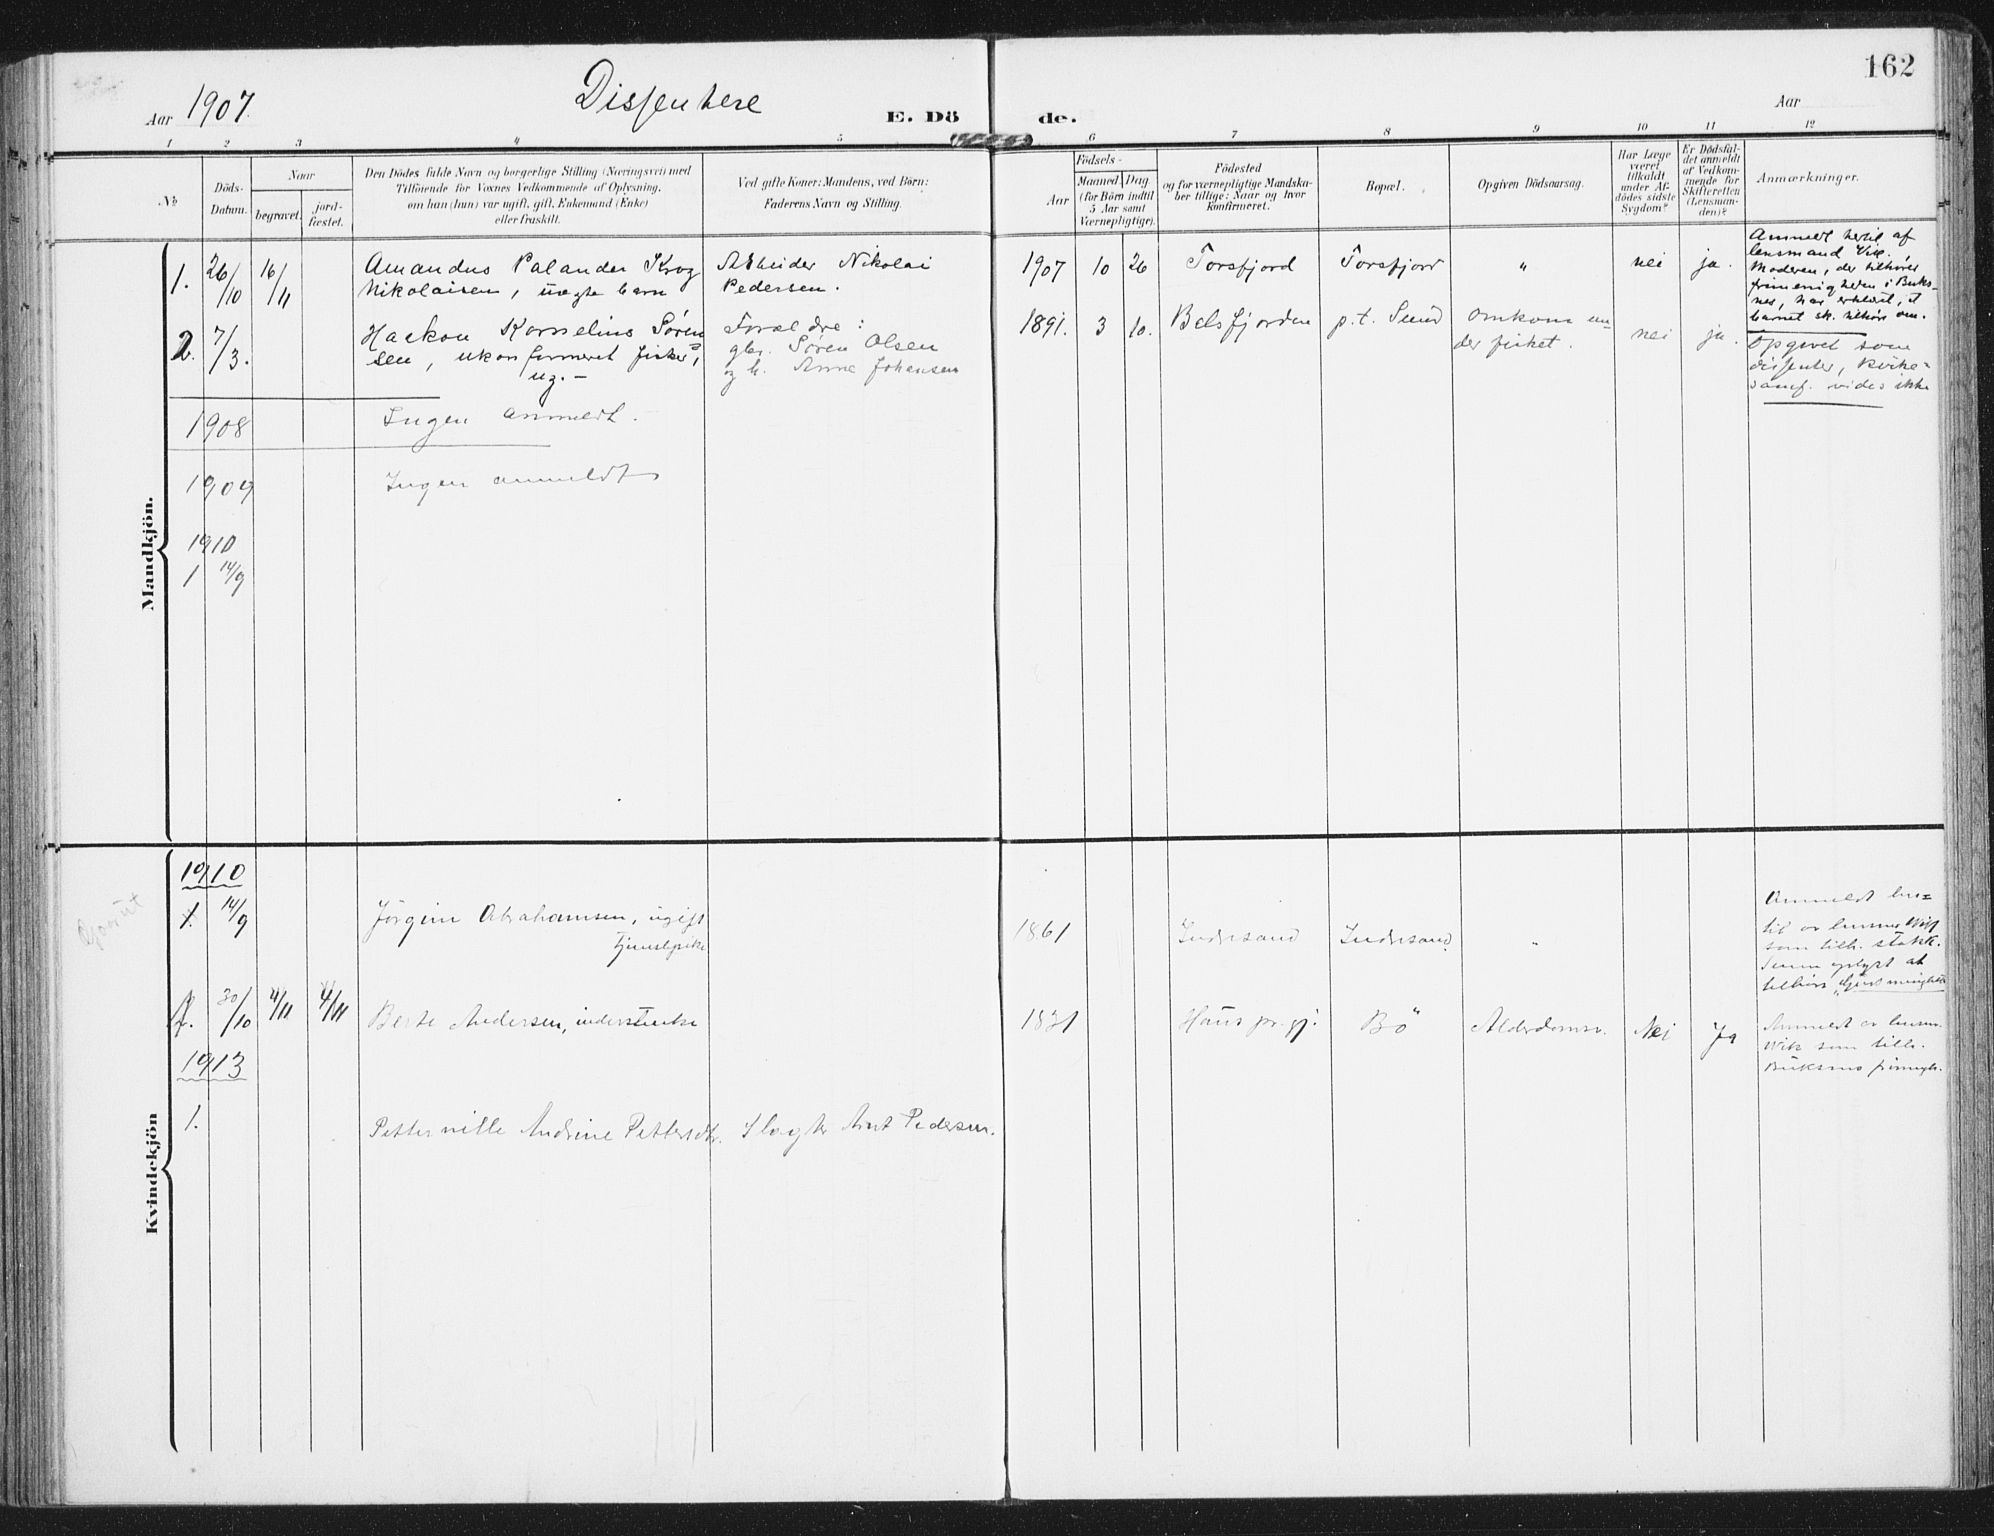 162
Aar 1907. Dissentere E. Dö de. Aar
1 2 3 4 5 6 7 8 9 10 11 12
No
Döds-Datum.
Naar
begravet.
jord-fæstet.
Den Dödes fulde Navn og borgerlige Stilling (Næringsvei) med
Tilföiende for Voxnes Vedkommende af Oplysning,
om han (hun) var ugift, gift, Enkemand (Enke)
eller fraskilt.
Ved gifte Koner: Mandens, ved Börn:
Faderens Navn og Stilling.
Födsels-
Aar
Maaned Dag
(for Börn indtil
5 Aar samt
Værnepligtige).
Födested
og for værnepligtige Mandska-
ber tillige: Naar og hvor
konfirmeret.
Bopæl.
Opgiven Dödsaarsag.
Har Læge
været
tilkaldt
under Af-
dödes sidste
Sygdom?
Er Dödsfal-
det anmeldt
af Vedkom-
mende for
Skifteretten
(Lensman-
den)?
Anmærkninger.
Mandkjön.
1. 26/10 16/11
Amandus Palander Krog
Nikolaisen, uægte barn
Arbeider Nikolai
Pedersen.
1907 10 26 Torsfjord Torsfjord " nei ja.
Anmeldt hertil af
lensmand Vik.
Moderen, der tilhører
frimenigheden i Buks-
nes, har erklært, at
barnet sk. tilhøre den.
2. 7/3.
Haakon Kornelius Søren-
sen, ukonfirmeret fisker,
ug. -
Forældre:
gbr. Søren Olsen
og h. Anna Johansen
1891. 3 10. Belsfjorden p.t. Sund omkom un-
der fisket. nei ja.
Opgivet som
dissenter, kirke-
samf. vides ikke
1908 Ingen anmeldt.
1909 Ingen anmeldt
1910
1 14/9
Kvindekjön
1910
1. 14/9 Jörgine Abrahamsen, ugift
tjenestepike
1861 Indresand Indresand. "
Anmeldt her-
til av lensm. Wik
som tilh. statsk.
Senere oplyst at
tilhøre
2. 30/10 4/11 4/11 Berte Andersen, inderstenke
1831 Haus pr.gj. Bö Alderdomsv. Nei Ja
Anmeldt av lensm.
Wik som tilh.
Buksnes frimenigh.
1913
1. Petternille Andrine Pettersdtr. Slagter Arnt Pedersen.